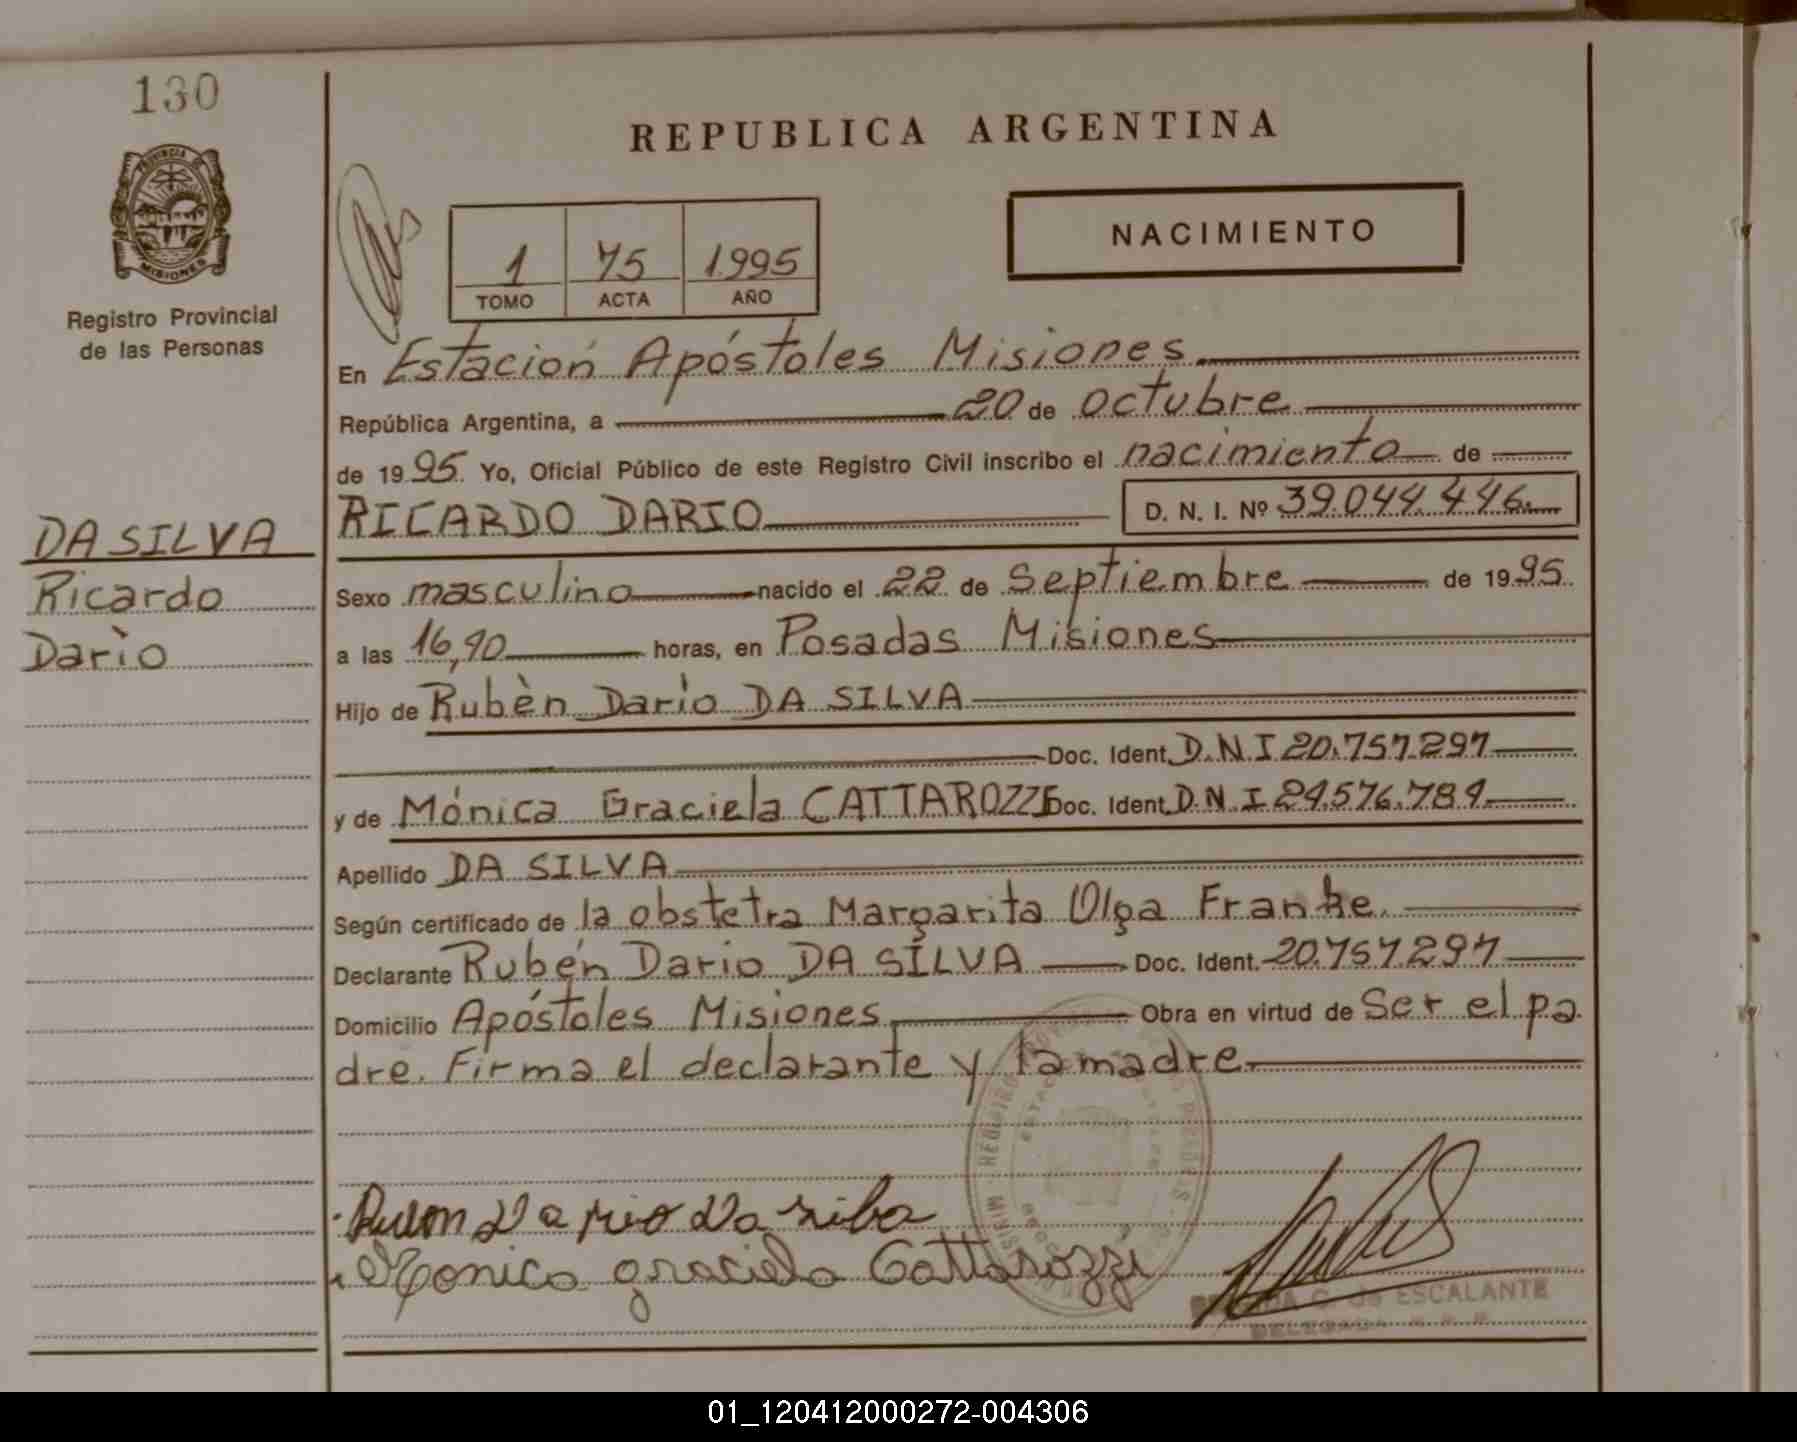 130
PROVINCIA DE
MISIONES
Registro Provincial
de las Personas
REPUBLICA ARGENTINA
NACIMIENTO
1 75 1995
TOMO ACTA AÑO
En Estación Apóstoles Misiones
República Argentina, a 20 de octubre
de 1995. Yo, Oficial Público de este Registro Civil inscribo el nacimiento de
RICARDO DARIO D. N. I. Nº 39.044.446.
DA SILVA
Ricardo
Darìo
Sexo masculino nacido el 22 de Septiembre de 1995.
a las horas, en Posadas Misiones
Hijo de Rubèn Darìo DA SILVA
Doc. Ident. D.N.I 20.757.297
y de Mónica Graciela CATTAROZZI Doc. Ident. D.N.I
Apellido DA SILVA
Según certificado de la obstetra Margarita Olga Franke.
Declarante Rubén Dario DA SILVA Doc. Ident. 20.757.297
Domicilio Apóstoles Misiones Obra en virtud de Ser el pa
dre. Firma el declarante y la madre
Ruben Dario Da Silva
Monica graciela Cattarozzi
C. de ESCALANTE
DELEGADA
01_120412000272-004306